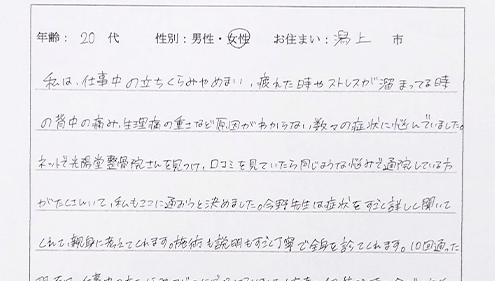 年齢： 20 代　性別：男性・女性　お住まい：潟上 市
私は、仕事中の立ちくらみやめまい、疲れた時やストレスが溜まってる時
の背中の痛み、生理痛の重さなど原因がわからない数々の症状に悩んでいました。
ネットで光陽堂整骨院さんを見つけ、口コミを見ていたら同じような悩みで通院している方
がたくさんいて、私もここに通おうと決めました。今野先生は症状をすごく詳しく聞いて
くれて、親身に考えてくれます。施術も説明もすごく丁寧で全身を診てくれます。10回通った